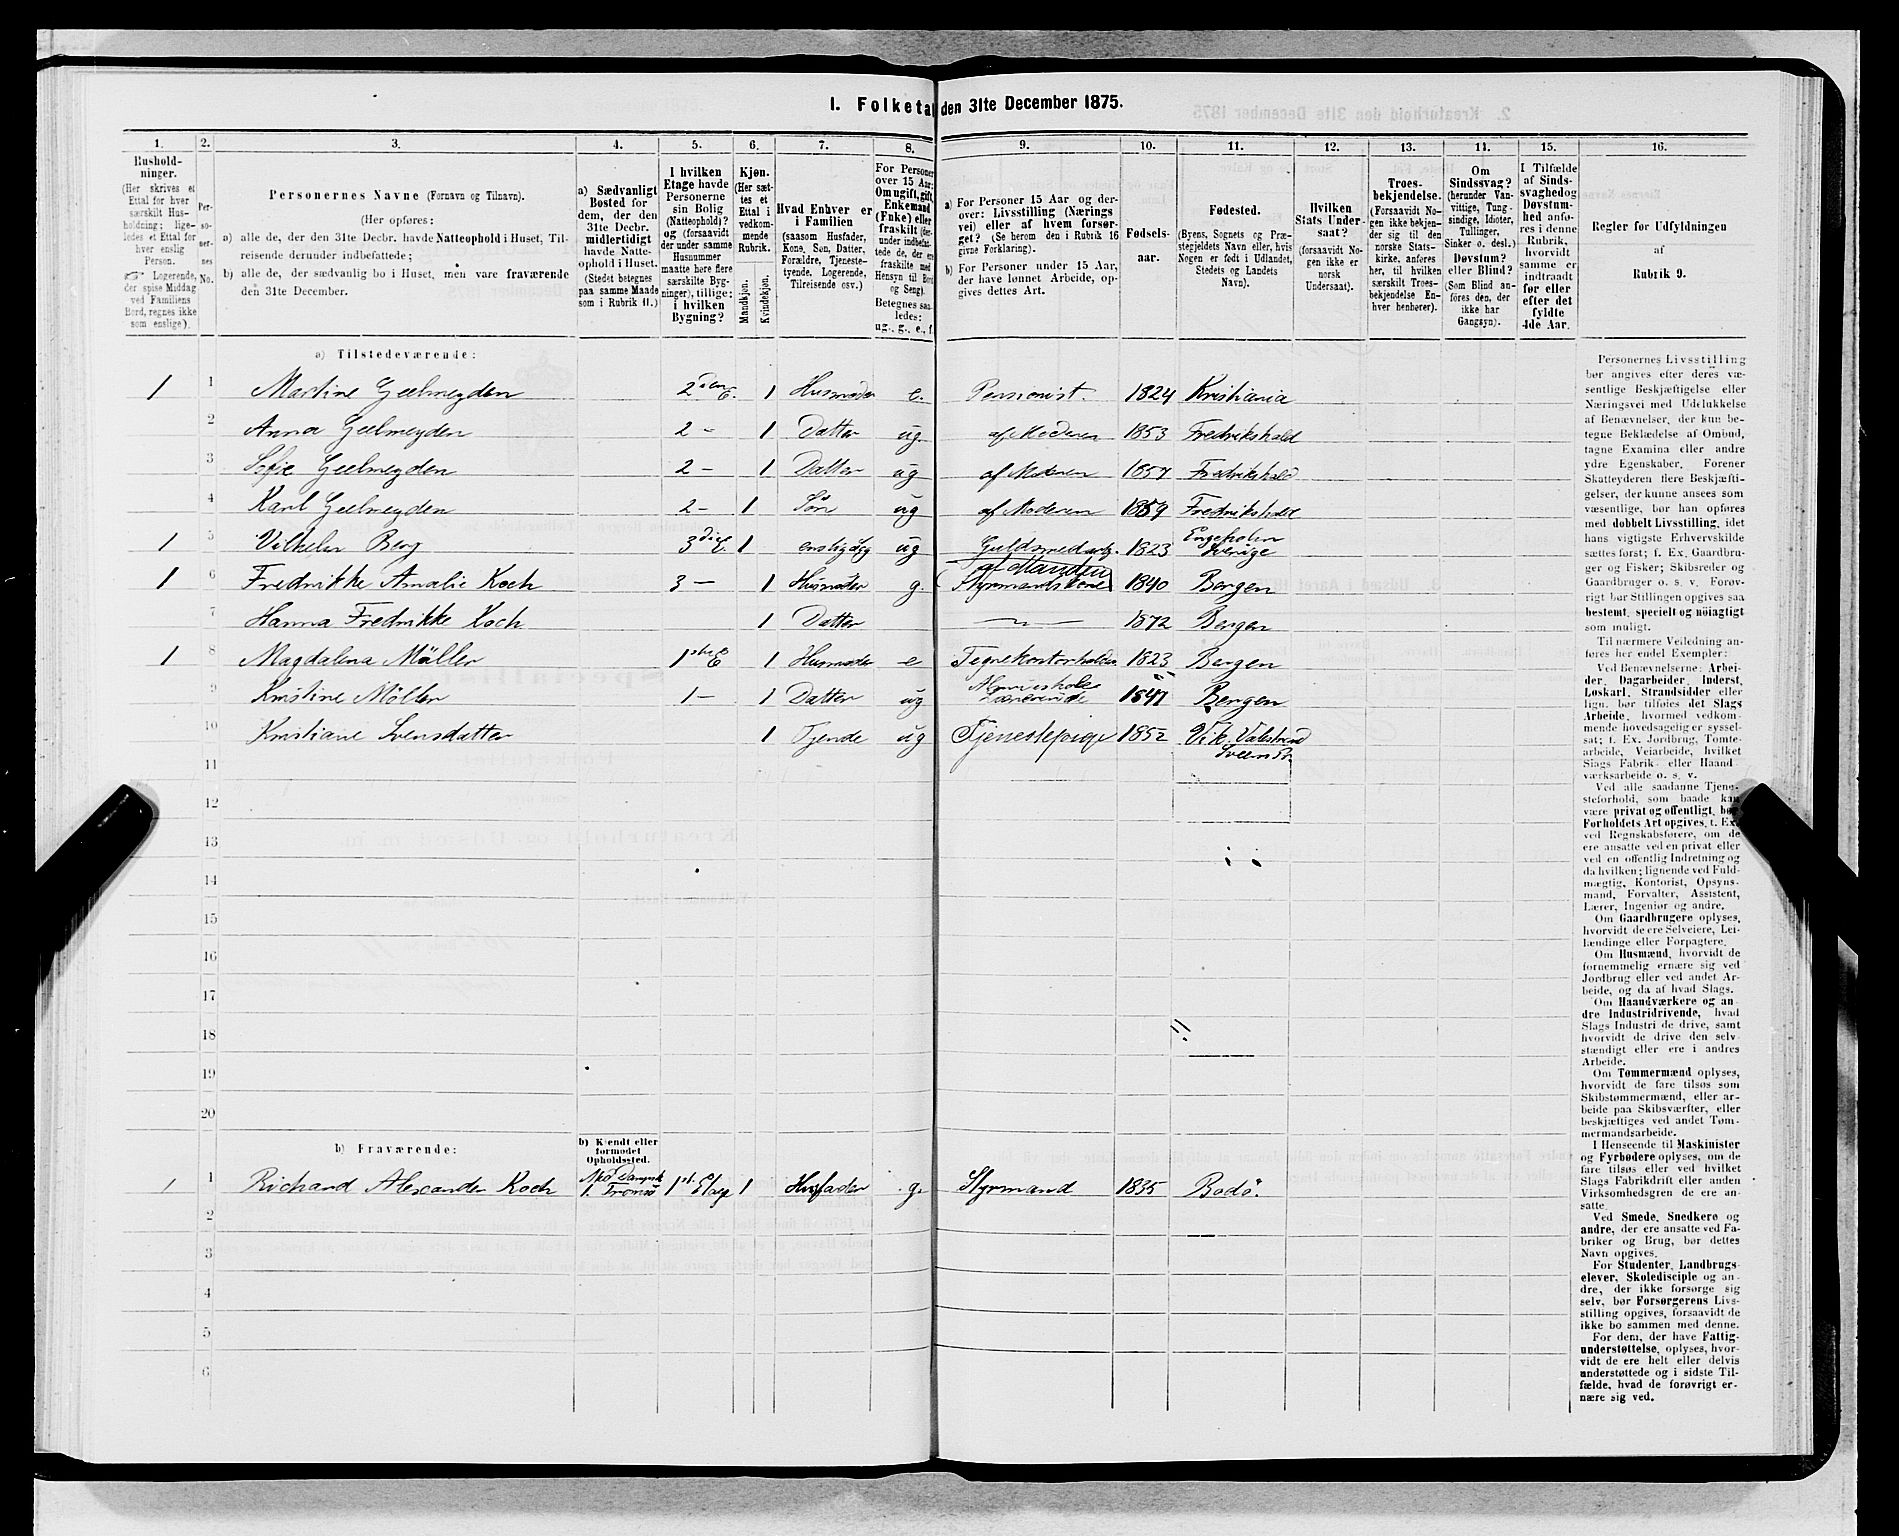 I. Folketa den 31te December 1875.
1. 2. 3. 4. 5. 6. 7. 8. 9. 10. 11. 12. 13. 14. 15. 16.
Hushold-
ninger.
(Her skrives et
Ettal for hver
særskilt Hus-
holdning; lige-
ledes et Ettal for
hver enslig
Person.
Logerende,
der spise Middag
ved Familiens
Bord, regnes ikke
som enslige).
Per-
so-
ner-
nes
No.
Personernes Navne (Fornavn og Tilnavn).
(Her opføres:
a) alle de, der den 31te Decbr. havde Natteophold i Huset, Til-
reisende derunder indbefattede;
b) alle de, der sædvanlig bo i Huset, men vare fraværende
den 31te December.
a) Sædvanligt
Bosted for
dem, der den
31te Decbr.
midlertidigt
havde Natte-
ophold i Huset.
(Stedet betegnes
paa samme Maade
som i Rubrik 11.)
I hvilken
Etage havde
Personerne
sin Bolig
(Natteophold)?
og (forsaavidt
der under samme
Husnummer
maatte høre flere
særskilte Byg-
ninger), tillige:
i hvilken
Bygning?
Kjøn.
(Her sæt-
tes et
Ettal i
vedkom-
mende
Rubrik.
Mandkjøn.
Kvindekjøn.
Hvad Enhver er
i Familien
(saasom Husfader,
Kone, Søn, Datter,
Forældre, Tjeneste-
tyende, Logerende,
Tilreisende osv.)
For Personer
over 15 Aar:
Om ugift, gift,
Enkemand
(Enke) eller
fraskilt (der-
under indbefat-
tede de, der ere
fraskilte med
Hensyn til Bord
og Seng).
Betegnes saa-
ledes:
ug., g., e., f.
a) For Personer 15 Aar og der-
over: Livsstilling (Nærings
vei) eller af hvem forsør-
get? (Se herom den i Rubrik 16
givne Forklaring).
b) For Personer under 15 Aar,
der have lønnet Arbeide, op-
gives dettes Art.
Fødsels-
aar.
Fødested.
(Byens, Sognets og Præ-
stegjeldets Navn eller, hvis
Nogen er født i Udlandet,
Stedets og Landets
Navn).
Hvilken
Stats Under-
saat?
(forsaavidt No-
gen ikke er
norsk
Undersaat).
Troes-
bekjendelse.
(Forsaavidt No-
gen ikke bekjen-
der sig til den
norske Stats-
kirke, anføres
her, til hvilken
særskilt Troes-
bekjendelse En-
hver henhører).
Om
Sindssvag?
(herunder Van-
vittige, Tung-
sindige, Idioter,
Tullinger,
Sinker o. desl.)
Døvstum?
eller Blind?
(Som Blind an-
føres den, der
ikke har
Gangsyn).
I Tilfælde
af Sinds-
svaghed og
Døvstum-
hed anfø-
res i denne
Rubrik,
hvorvidt
samme er
indtraadt
før eller
efter det
fyldte
4de Aar.
Regler for Udfyldningen
af
Rubrik 9.
a) Tilstedeværende:
1 1 Martine Geelmeyden 2den E. 1 Husmoder e. Pensionist. 1824 Kristiania
2 Anna Geelmeyden 2 - 1 Datter ug. af Moderen 1853 Fredrikshald
3 Sofie Geelmeyden 2 - 1 Datter ug af Moderen 1857 Fredrikshald
4 Karl Geelmeyden 2 - 1 Søn ug af Moderen 1859 Fredrikshald
1 5 Vilhelm Berg 3die E. 1 enslig ug Guldsmed 1823 Engeholm Sverige
1 6 Fredrikke Amalie Koch 3 - 1 Husmoder g. Styrmandskone af Manden 1840 Bergen
7 Hanna Fredrikke Koch 1 Datter 1872 Bergen
1 8 Magdalena Möller 1ste E 1 Husmoder e 1823 Bergen
9 Kristine Möller 1 - 1 Datter ug Almueskole Lærerinde 1847 Bergen
10 Kristiane Svensdatter 1 Tjende ug Tjenestepige 1852 Vik. Valestrand Sveens Pr
11
12
13
14
15
16
17
18
19
20
b) Fraværende:
b) Kjendt eller
formodet
Opholdssted.
1 1 Richard Alexander Koch i Tromsö 1st. Etage 1 Husfader g. Styrmand 1835 Bodö.
2
3
4
5
6
Personernes Livsstilling
bør angives efter deres væ-
sentlige Beskjæftigelse eller
Næringsvei med Udelukkelse
af Benævnelser, der kun be-
tegne Beklædelse af Ombud,
tagne Examina eller andre
ydre Egenskaber. Forener
Skatteyderen flere Beskjæfti-
gelser, der kunne ansees som
væsentlige, bør han opføres
med dobbelt Livsstilling, idet
hans vigtigste Erhvervskilde
sættes først; f. Ex. Gaardbru-
ger og Fisker; Skibsreder og
Gaardbruger o. s. v. Forøv-
rigt bør Stillingen opgives saa
bestemt, specielt og nöiagtigt
som muligt.
Til nærmere Veiledning an-
føres her endel Exempler:
Ved Benævnelserne: Arbei-
der, Dagarbeider, Inderst,
Løskarl, Strandsidder eller
lign. bør tilføies det Slags
Arbeide, hvormed vedkom-
mende hovedsagelig er syssel-
sat; f. Ex. Jordbrug, Tomte-
arbeide, Veiarbeide, hvilket
Slags Fabrik- eller Haand-
værksarbeide o. s. v.
Ved alle saadanne Tjene-
steforhold, som baade kan
være privat og offentligt, bør
Forholdets Art opgives, t. Ex.
ved Regnskabsførere, om de
ere ansatte ved en privat eller
ved en offentlig Indretning og
da hvilken; lignende ved Fuld-
mægtig, Kontorist, Opsyns-
mand, Forvalter, Assistent,
Lærer, Ingeniør og andre.
Om Gaardbrugere oplyses,
hvorvidt de ere Selveiere, Lei-
lændinge eller Forpagtere.
Om Husmænd, hvorvidt de
fornemmelig ernære sig ved
Jordbrug eller ved andet Ar-
beide, og da af hvad Slags.
Om Haandværkere og an-
dre Industridrivende, hvad
Slags Industri de drive, samt
hvorvidt de drive den selv-
stændigt eller ere i andres
Arbeide.
Om Tømmermænd oplyses,
hvorvidt de fare tilsøs som
Skibstømmermænd, eller ar-
beide paa Skibsværfter, eller
beskjæftiges ved andet Tøm-
mermandsarbeide.
I Henseende til Maskinister
og Fyrbødere oplyses, om de
fare tilsøs eller ved hvilket
Slags Fabrikdrift eller anden
Virksomhedsgren de ere an-
satte.
Ved Smede, Snedkere og
andre, der ere ansatte ved Fa-
briker og Brug, bør dettes
Navn opgives.
For Studenter, Landbrugs-
elever, Skoledisciple og an-
dre, der ikke forsørge sig
selv, bør Forsørgerens Livs-
stilling opgives, forsaavidt de
ikke bo sammen med denne.
For dem, der have Fattig-
understøttelse, oplyses, hvor-
vidt de ere helt eller delvis
understøttede og i sidste Til-
fælde, hvad de forøvrigt er-
nære sig ved.